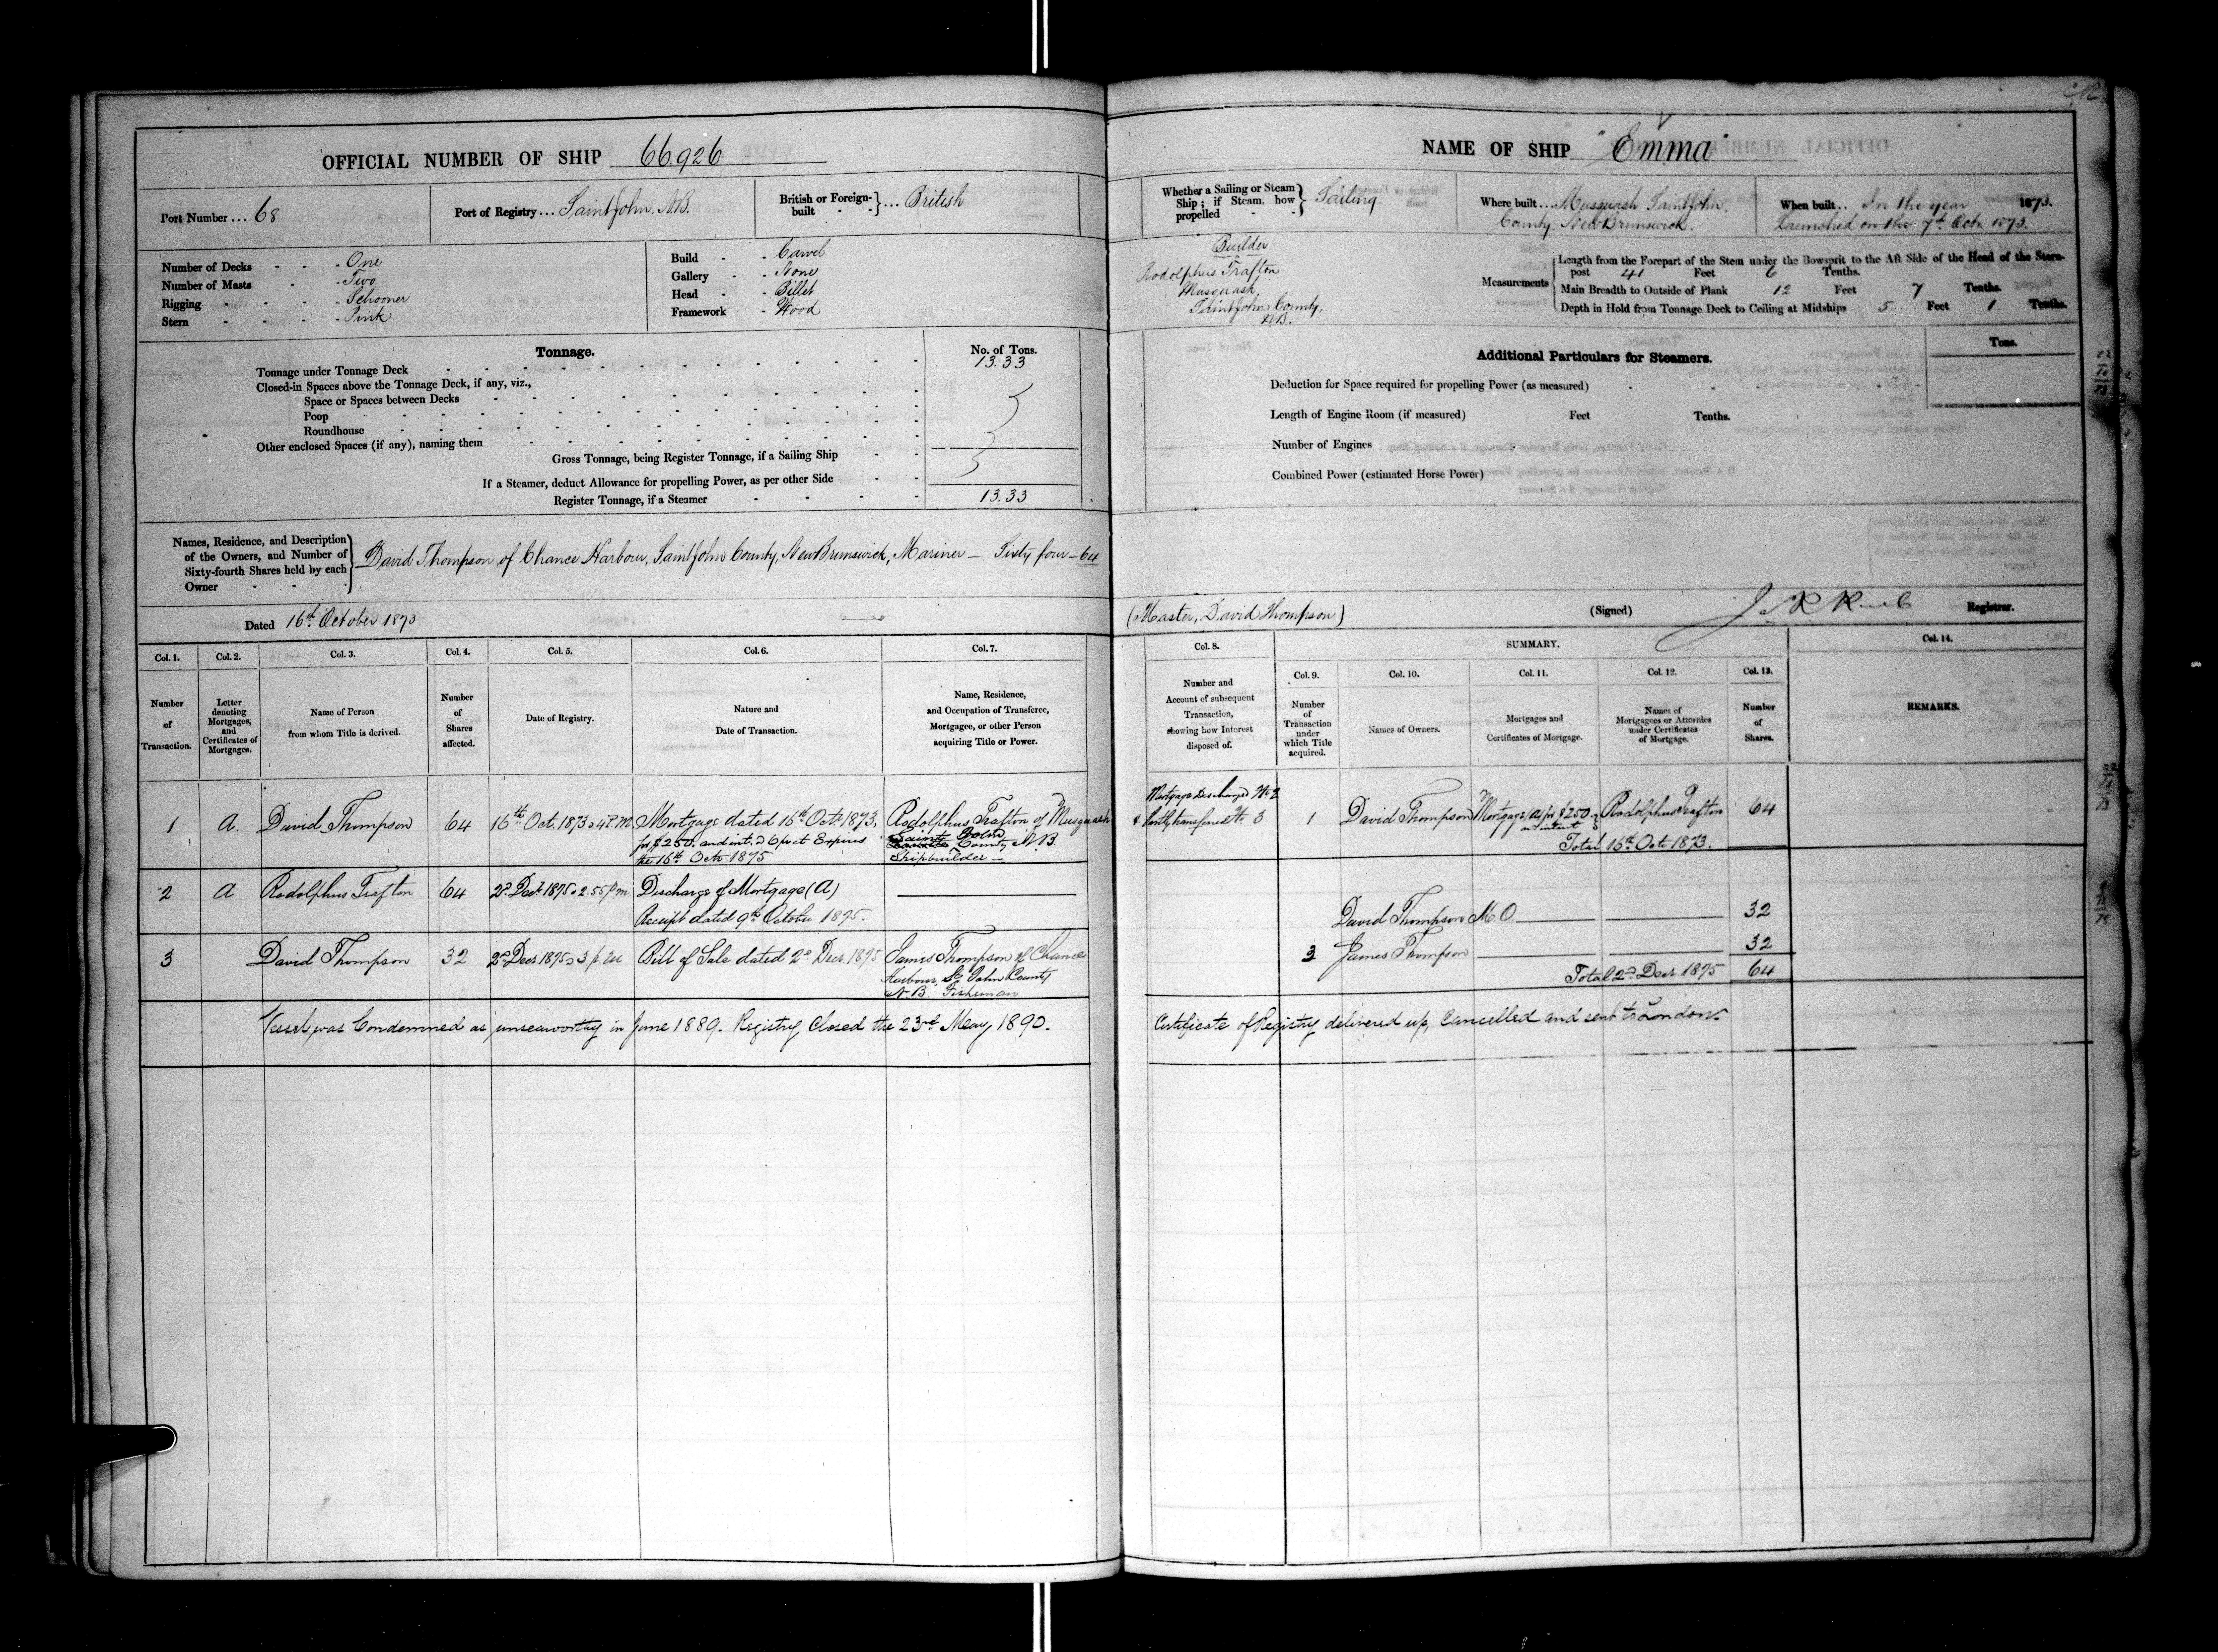 OFFICIAL NUMBER OF SHIP 66926
Port Number ... 68
Port of Registry ... Saint John. N.B.
British or Foreign-built } ... British
Number of Decks - One
Number of Masts - Two
Rigging - Schooner
Stern - Pink
Build - Carvel
Gallery - None
Head - Billet
Framework - Wood
Tonnage.
No. of Tons.
Tonnage under Tonnage Deck 13.33
Closed-in Spaces above the Tonnage Deck, if any, viz.,
Space or Spaces between Decks
Poop
Roundhouse
Other enclosed Spaces (if any), naming them
Gross Tonnage, being Register Tonnage, if a Sailing Ship
If a Steamer, deduct Allowance for propelling Power, as per other Side
Register Tonnage, if a Steamer 13.33
Names, Residence, and Description
of the Owners, and Number of
Sixty-fourth Shares held by each
Owner
David Thompson of Chance Harbour, Saint John County, New Brunswick, Mariner — Sixty four — 64
Dated 16th October 1873
Col. 1. Col. 2. Col. 3. Col. 4. Col. 5. Col. 6. Col. 7.
Number of Transaction.
Letter denoting Mortgages, and Certificates of Mortgages.
Name of Person from whom Title is derived.
Number of Shares affected.
Date of Registry.
Nature and Date of Transaction.
Name, Residence, and Occupation of Transferee, Mortgagee, or other Person acquiring Title or Power.
1 A. David Thompson 64 16th Oct. 1873 4 P.M. Mortgage dated 16th Octr 1873. Rodolphus Trafton of Musquash
for $250. and int. @ 6 pr ct Expires
the 16th Octr 1875
Saint John
County N.B.
Shipbuilder —
2 A Rodolphus Trafton 64 2d Decr 1875 2.55 p m Discharge of Mortgage (A)
Receipt dated 9th October 1875.
3 David Thompson 32 2d Decr 1875 3 p. Bill of Sale dated 2d Decr 1875 James Thompson of Chance
Harbour, St John County
N.B. Fisherman
Vessel was Condemned as unseaworthy in June 1889. Registry Closed the 23rd May, 1890.
NAME OF SHIP "Emma"
Whether a Sailing or Steam Ship; if Steam, how propelled } Sailing
Where built ... Musquash Saint John.
County. New Brunswick.
When built .. In the year 1873.
Launched on the 7th Oct. 1873.
Builder
Rodolphus Trafton
Musquash,
Saint John County.
N.B.
Measurements
Length from the Forepart of the Stem under the Bowsprit to the Aft Side of the Head of the Stern-
post 41 Feet 6 Tenths.
Main Breadth to Outside of Plank 12 Feet 7 Tenths.
Depth in Hold from Tonnage Deck to Ceiling at Midships 5 Feet 1 Tenths.
Additional Particulars for Steamers.
Tons.
Deduction for Space required for propelling Power (as measured)
Length of Engine Room (if measured) Feet Tenths.
Number of Engines
Combined Power (estimated Horse Power)
(Master, David Thompson) (Signed) Registrar.
Col. 8. SUMMARY. Col. 14.
Col. 9. Col. 10. Col. 11. Col. 12. Col. 13.
Number and Account of subsequent Transaction, showing how Interest disposed of.
Number of Transaction under which Title acquired.
Names of Owners.
Mortgages and Certificates of Mortgage.
Names of Mortgagees or Attornies under Certificates of Mortgage.
Number of Shares.
REMARKS.
Mortgage discharged No 2
& partly transferred No. 3
1 David Thompson Mortgage (A) for $250 Rodolphus Trafton 64
and interest
Total 16th Octr 1873.
David Thompson M.O 32
3 James Thompson 32
Total 2d Decr 1875 64
Certificate of Registry delivered up, Cancelled and sent to London.